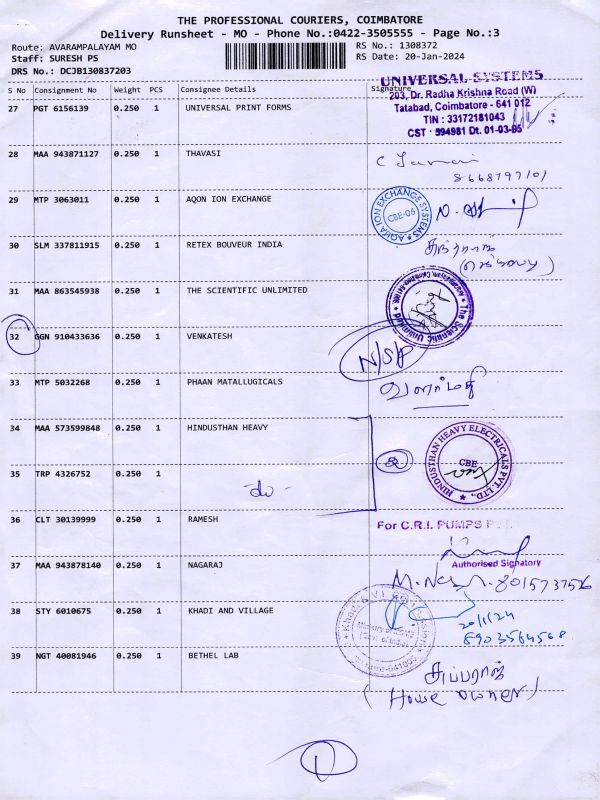 THE PROFESSIONAL COURIERS, COIMBATORE
Delivery Runsheet - MO - Phone No.:0422-3505555 - Page No.:3
Route: AVARAMPALAYAM MO
RS No.: 1308372
Staff: SURESH PS
RS Date: 20-Jan-2024
DRS No.: DCJB130837203
S No Consignment No Weight PCS Consignee Details Signature
UNIVERSAL SYSTEMS
203, Dr. Radha Krishna Road (W)
Tatabad, Coimbatore - 641 012
TIN : 33172181043
CST : 594981 Dt. 01-03-95
27 PGT 6156139 0.250 1 UNIVERSAL PRINT FORMS
28 MAA 943871127 0.250 1 THAVASI
8668797101
29 MTP 3063011 0.250 1 AQON ION EXCHANGE
AQUA ION EXCHANGE SYSTEMS
CBE-06
30 SLM 337811915 0.250 1 RETEX BOUVEUR INDIA
31 MAA 863545938 0.250 1 THE SCIENTIFIC UNLIMITED
The Scientific Unlimited
32 GGN 910433636 0.250 1 VENKATESH
N/S/P
33 MTP 5032268 0.250 1 PHAAN MATALLUGICALS
வளர்மதி
34 MAA 573599848 0.250 1 HINDUSTHAN HEAVY
2
HINDUSTHAN HEAVY ELECTRICALS PVT. LTD.,
CBE
35 TRP 4326752 0.250 1
do -
36 CLT 30139999 0.250 1 RAMESH
For C.R.I. PUMPS
Authorised Signatory
37 MAA 943878140 0.250 1 NAGARAJ
8015737576
38 STY 6010675 0.250 1 KHADI AND VILLAGE
20/1/24
8903564568
39 NGT 40081946 0.250 1 BETHEL LAB
(House owner)
1